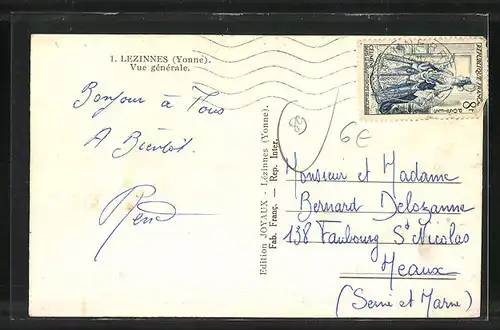 1. LEZINNES (Yonne).
Vue générale.
Bonjour à Tous
A Bientôt.
René
Edition JOYAUX - Lézinnes (Yonne).
Fab. Franç. — Rep. Inter.
28
6€
REPUBLIQUE FRANÇAISE
8F
Monsieur et Madame
Bernard Delozanne
138 Faubourg St Nicolas
Meaux
(Seine et Marne)